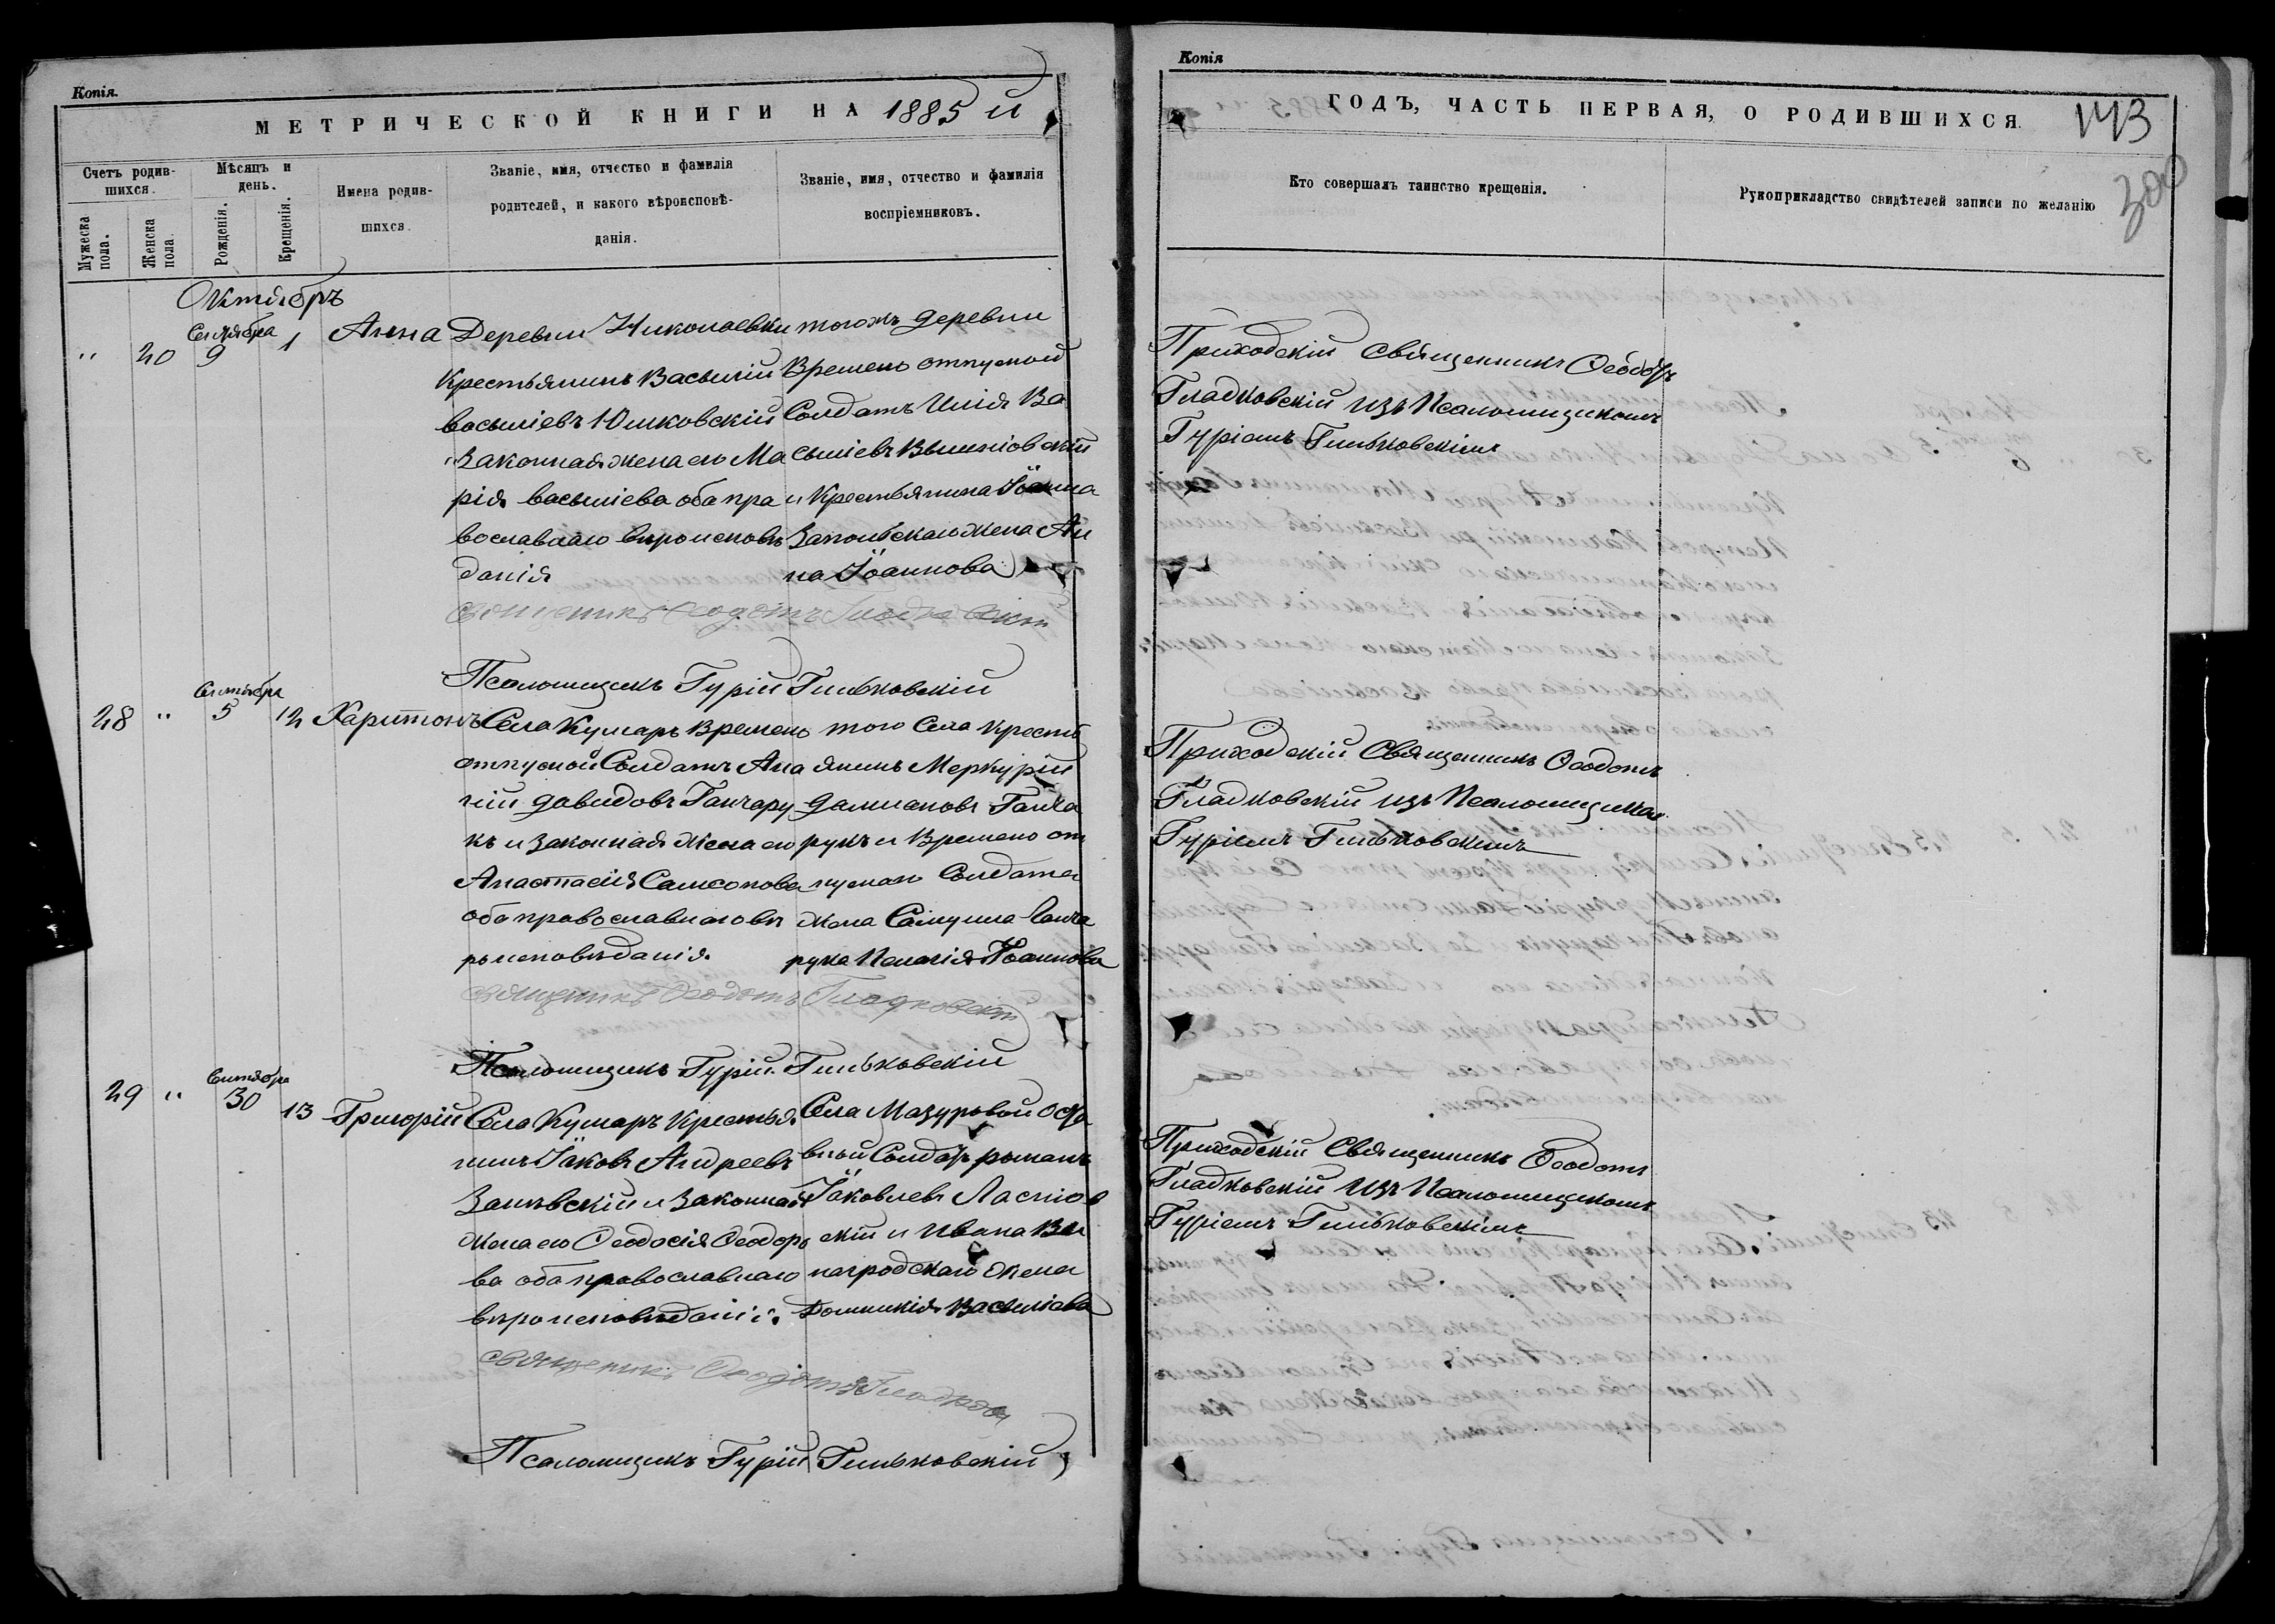 Копія.
МЕТРИЧЕСКОЙ КНИГИ НА 1885 й
Счетъ родив-
шихся.
Мужеска
пола.
Женска
пола.
Мѣсяцъ и
день.
Рожденія.
Крещенія.
Имена родив-
шихся.
Званіе, имя, отчество и фамилія
родителей, и какого вѣроисповѣ-
данія.
Званіе, имя, отчество и фамилія
воспріемниковъ.
Октябръ
Сентября
" 20 9 1 Анна
Деревни Николаевки
Крестьянинъ Василій
васыліевъ Юшковскій
и Законная жена его Ма
рія васыліева оба пра
вославнаго вѣроисповѣ
данія
тогожъ деревни
Временно отпускной
Солдатъ Илія Ва
сыліевъ
и Крестьянина Іоанна
жена Ан
на Іоаннова
священникъ Ѳеодотъ Гладковскій
Псаломщикъ Гурій Гиньковскій
Сентября
28 " 5 12 Харитонъ
Села Кушаръ Времено
отпускной Солдатъ Ана
ній давидовъ Ганчару
къ и Законная жена его
Анастасія Самсонова
оба православнаго вѣ
роисповѣданія.
того Села Кресть
янинъ Меркурій
даміановъ Ганча
рукъ и Времено от
пускнаго Солдата
жена Самуила Ганча
рука Пелагія Іоаннова
священникъ Ѳеодотъ Гладковскій
Псаломщикъ Гурій Гиньковскій
Сентября
29 " 30 13 Григорій
Села Кушаръ Крестья
нинъ Іаковъ Андреевъ
и Законная
жена его Ѳеодосія Ѳеодоро
ва оба православнаго
вѣроисповѣданія.
Села Мазуровой
Солдатъ романъ
Іаковлевъ
скій и Ивана Ви
наградскаго жена
Домникія Васыліева
священникъ Ѳеодотъ Гладков
Псаломщикъ Гурій Гиньковскій
Копія
ГОДЪ, ЧАСТЬ ПЕРВАЯ, О РОДИВШИХСЯ.
143
300
Кто совершалъ таинство крещенія.
Рукоприкладство свидѣтелей записи по желанію
Приходскій Священникъ Ѳеодотъ
Гладковскій изъ Псаломщикомъ
Гуріемъ Гиньковскимъ
Приходскій Священникъ Ѳеодотъ
Гладковскій изъ Псаломщикомъ
Гуріемъ Гиньковскимъ
Приходскій Священникъ Ѳеодотъ
Гладковскій изъ Псаломщикомъ
Гуріемъ Гиньковскимъ